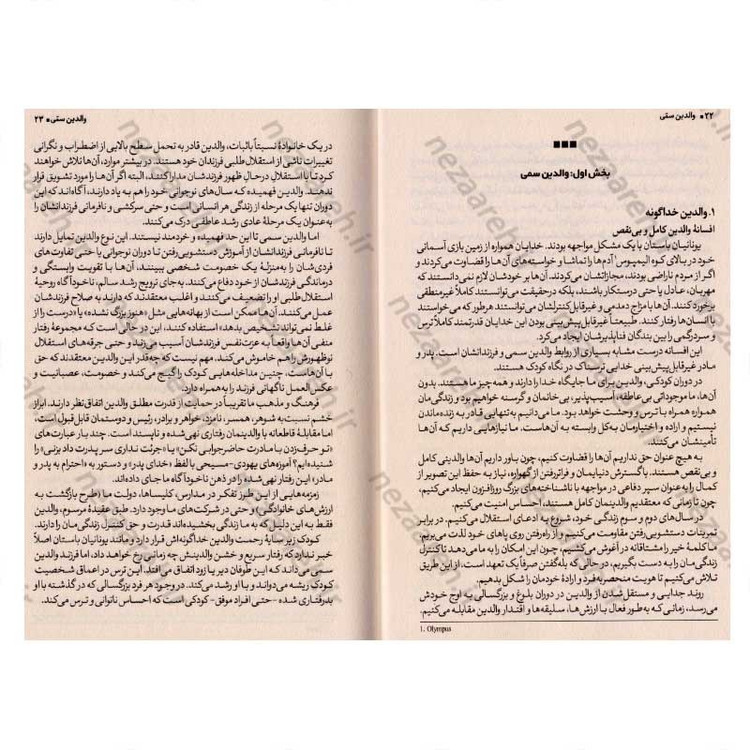 ۲۲ ■ والدین سمی
بخش اول: والدین سمی
۱. والدین خداگونه
افسانهٔ والدین کامل و بی‌نقص
یونانیان باستان با یک مشکل مواجهه بودند. خدایان همواره از زمین بازی آسمانی
خود در بالای کوه الیمپوس¹ آدم‌ها را تماشا و خواسته‌های آن‌ها را قضاوت می‌کردند و
اگر از مردم ناراضی بودند، مجازاتشان می‌کردند. آن‌ها بر خودشان لازم نمی‌دانستند که
مهربان، عادل یا حتی درستکار باشند، بلکه درحقیقت می‌توانستند کاملاً غیرمنطقی
برخورد کنند. آن‌ها با مزاج دمدمی و غیرقابل‌کنترلشان می‌توانستند هرطور که می‌خواستند
با انسان‌ها رفتار کنند. طبیعتاً غیرقابل پیش‌بینی بودن این خدایان قدرتمند کاملاً ترس
و سردرگمی را بین بندگان فناپذیرشان ایجاد می‌کرد.
این افسانه درست مشابه بسیاری از روابط والدین سمی و فرزندانشان است. پدر و
مادر غیرقابل پیش‌بینی خدایی ترسناک در نگاه کودک هستند.
در دوران کودکی، والدین برای ما جایگاه خدا را دارند و همه‌چیز ما هستند. بدون
آن‌ها، ما موجوداتی بی‌عاطفه، آسیب‌پذیر، بی‌خانمان و گرسنه خواهیم بود و زندگی‌مان
همواره همراه با ترس و وحشت خواهد بود. ما می‌دانیم به‌تنهایی قادر به زنده‌ماندن
نیستیم و اراده و اختیارمان به‌کل وابسته به آن‌هاست. ما نیازهایی داریم که آن‌ها
تأمینشان می‌کنند.
به هیچ عنوان حق نداریم آن‌ها را قضاوت کنیم، چون باور داریم آن‌ها والدینی کامل
و بی‌نقص هستند. با گسترش دنیایمان و فراتررفتن از گهواره، نیاز به حفظ این تصویر از
کمال را به‌عنوان سپر دفاعی در مواجهه با ناشناخته‌های بزرگ روزافزون ایجاد می‌کنیم.
چون تا زمانی که معتقدیم والدینمان کامل هستند، احساس امنیت می‌کنیم.
در سال‌های دوم و سوم زندگی خود، شروع به ادعای استقلال می‌کنیم. در برابر
تمرینات دستشویی‌رفتن مقاومت می‌کنیم و از راه‌رفتن روی پاهای خود لذت می‌بریم.
ما کلمهٔ خیر را مشتاقانه در آغوش می‌کشیم، چون این امکان را به ما می‌دهد تا کنترل
زندگی‌مان را به دست بگیریم، در حالی که بله‌گفتن صرفاً یک تعهد است. از این طریق
تلاش می‌کنیم تا هویت منحصربه‌فرد و ارادهٔ خودمان را شکل بدهیم.
روند جدایی و مستقل‌شدن از والدین در دوران بلوغ و بزرگسالی به اوج خودش
می‌رسد، زمانی که به‌طور فعال با ارزش‌ها، سلیقه‌ها و اقتدار والدین مقابله می‌کنیم.
1. Olympus
والدین سمی ■ ۲۳
در یک خانوادهٔ نسبتاً باثبات، والدین قادر به تحمل سطح بالایی از اضطراب و نگرانی
تغییرات ناشی از استقلال‌طلبی فرزندان خود هستند. در بیشتر موارد، آن‌ها تلاش خواهند
کرد تا با استقلال درحال ظهور فرزندشان مدارا کنند، البته اگر آن‌ها را مورد تشویق قرار
ندهند. والدین فهمیده که سال‌های نوجوانی خود را هم به یاد دارند، آگاه‌اند که این
دوران تنها یک مرحله از زندگی هر انسانی است و حتی سرکشی و نافرمانی فرزندانشان را
به‌عنوان یک مرحلهٔ عادی رشد عاطفی درک می‌کنند.
اما والدین سمی تا این حد فهمیده و خردمند نیستند. این نوع والدین تمایل دارند
تا نافرمانی فرزندانشان از آموزش دستشویی‌رفتن تا دوران نوجوانی یا حتی تفاوت‌های
فردی‌شان را به‌منزلهٔ یک خصومت شخصی ببینند. آن‌ها با تقویت وابستگی و
درماندگی فرزندشان از خود دفاع می‌کنند. به‌جای ترویج رشد سالم، ناخودآگاه روحیهٔ
استقلال‌طلبی او را تضعیف می‌کنند و اغلب معتقدند که دارند به صلاح فرزندشان
عمل می‌کنند. آن‌ها ممکن است از بهانه‌هایی مثل «هنوز بزرگ نشده» یا «درست را از
غلط نمی‌تواند تشخیص بدهد» استفاده کنند، این در حالی است که مجموعهٔ رفتار
منفی آن‌ها واقعاً به عزت‌نفس فرزندشان آسیب می‌زند و حتی جرقه‌های استقلال
نوظهورش را هم خاموش می‌کند. مهم نیست که چه‌قدر این والدین معتقدند که حق
با آن‌هاست، چنین مداخله‌هایی کودک را گیج می‌کند و خصومت، عصبانیت و
عکس‌العمل ناگهانی فرزند را به‌همراه دارد.
فرهنگ و مذهب ما تقریباً در حمایت از قدرت مطلق والدین اتفاق‌نظر دارند. ابراز
خشم نسبت به شوهر، همسر، نامزد، خواهر و برادر، رئیس و دوستمان قابل‌قبول است،
اما مقابلهٔ قاطعانه با والدینمان رفتاری نهی شده و ناپسند است. چند بار عبارت‌های
«تو حرف‌زدن با مادرت حاضرجوابی نکن» یا «جرئت نداری سر پدرت داد بزنی» را
شنیده‌ایم؟ آموزه‌های یهودی-مسیحی با لفظ «خدای پدر» و دستور به «احترام به پدر و
مادر» این رفتار نهی شده را در ذهن ناخودآگاه ما جای داده‌اند.
زمزمه‌هایی از این طرز تفکر در مدارس، کلیساها، دولت ما (طرح بازگشت به
ارزش‌های خانوادگی) و حتی در شرکت‌های ما وجود دارد. طبق عقیدهٔ مرسوم، والدین
فقط به این دلیل که به ما زندگی بخشیده‌اند قدرت و حق کنترل زندگی‌مان را دارند.
کودک زیر سایهٔ رحمت والدین خداگونه‌اش قرار دارد و مانند یونانیان باستان اصلاً
خبر ندارد که رفتار سریع و خشن والدینش چه زمانی رخ خواهد داد، اما فرزند والدین
سمی می‌داند که این طوفان دیر یا زود اتفاق می‌افتد. این ترس در اعماق شخصیت
کودک ریشه می‌دواند و با او رشد می‌کند. در وجود هر فرد بزرگسالی که در گذشته با او
بدرفتاری شده -حتی افراد موفق- کودکی است که احساس ناتوانی و ترس می‌کند.
nezaareh.ir